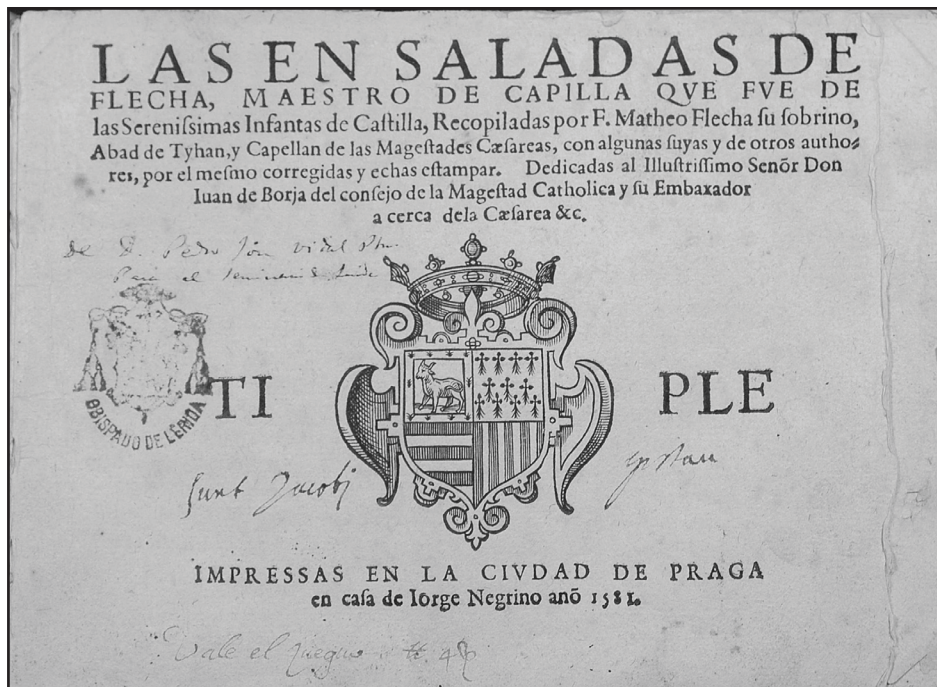 LAS EN SALADAS DE
FLECHA, MAESTRO DE CAPILLA QVE FVE DE
las Sereniſsimas Infantas de Caſtilla, Recopiladas por F. Matheo Flecha ſu ſobrino,
Abad de Tyhan, y Capellan de las Mageſtades Cæſareas, con algunas ſuyas y de otros autho-
res, por el meſmo corregidas y echas eſtampar. Dedicadas al Illuſtriſſimo Senõr Don
Iuan de Borja del conſejo de la Mageſtad Catholica y ſu Embaxador
a cerca dela Cæſarea &c.
de D. Pedro
el
TI PLE
OBISPADO DE LÉRIDA
Jacobi
IMPRESSAS EN LA CIVDAD DE PRAGA
en caſa de Iorge Negrino anõ 1581.
Vale el